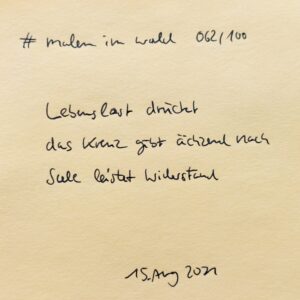 # malen im wald 062/100
Lebenslast drückt
das Kreuz gibt ächzend nach
Seele leistet Widerstand
15. Aug 2021